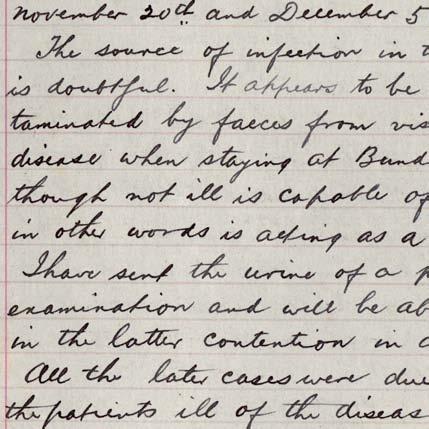 November 20th and December 5
The source of infection in
is doubtful. It appears to be
taminated by faeces from
disease when staying at Bund
though not ill is capable of
in other words is acting as a
I have sent the urine of a
examination and will be ab
in the latter contention in
All the later cases were due
the patients ill of the diseas